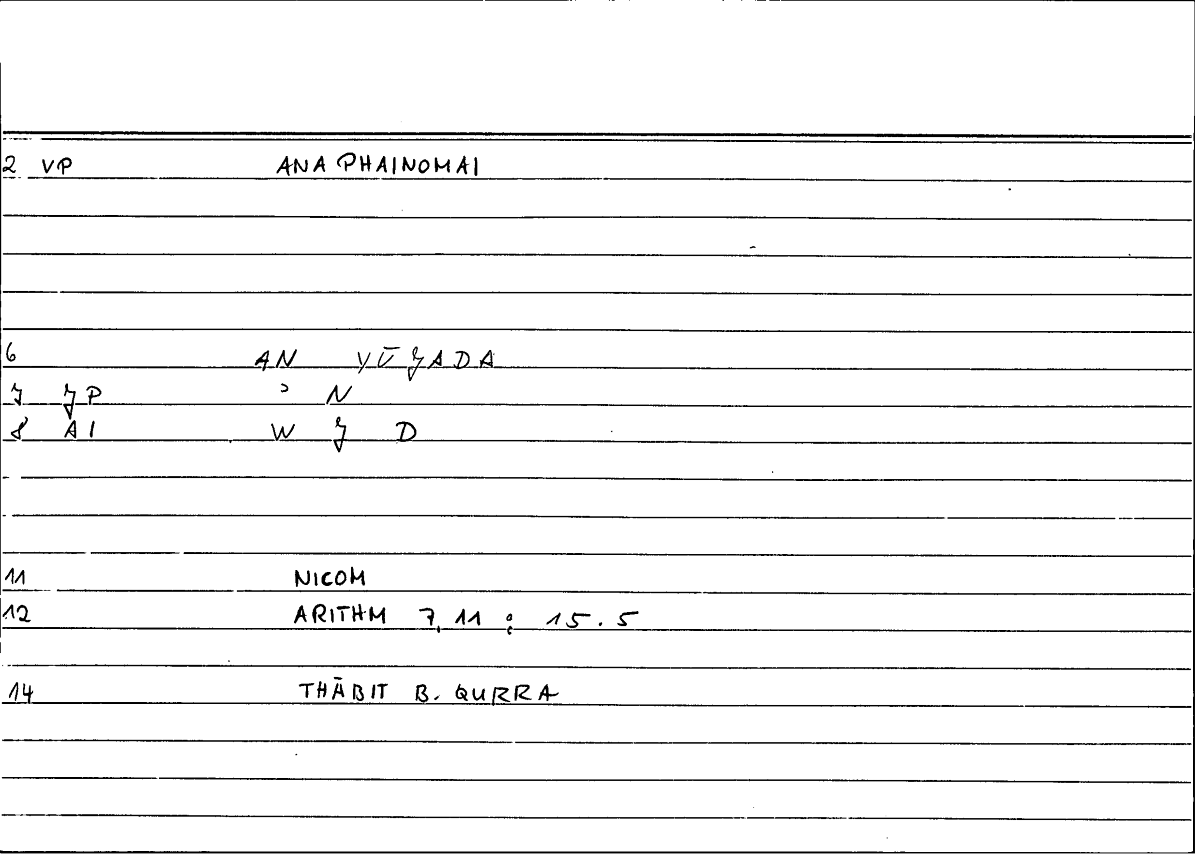 2 VP ANAPHAINOMAI
6 AN YŪJADA
7 JP ʾ N
8 AI W J D
11 NICOM
12 ARITHM 7, 11 : 15.5
14 THĀBIT B. QURRA